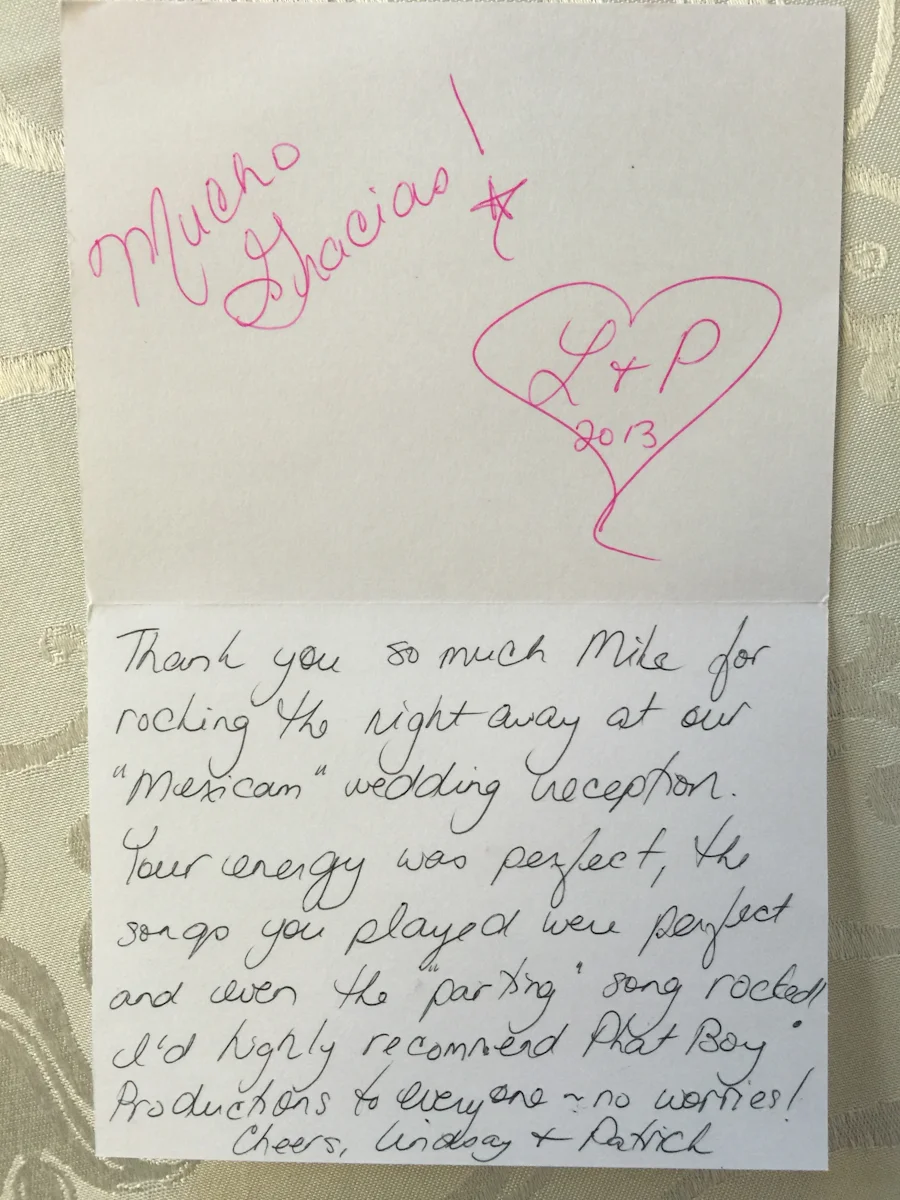 Mucho
Gracias!
L + P
2013
Thank you so much Mike for
rocking the night away at our
"Mexican" wedding reception.
Your energy was perfect, the
songs you played were perfect
and even the "parting" song rocked!
I'd highly recommend Phat Boy
Productions to everyone ~ no worries!
Cheers, Lindsay + Patrick